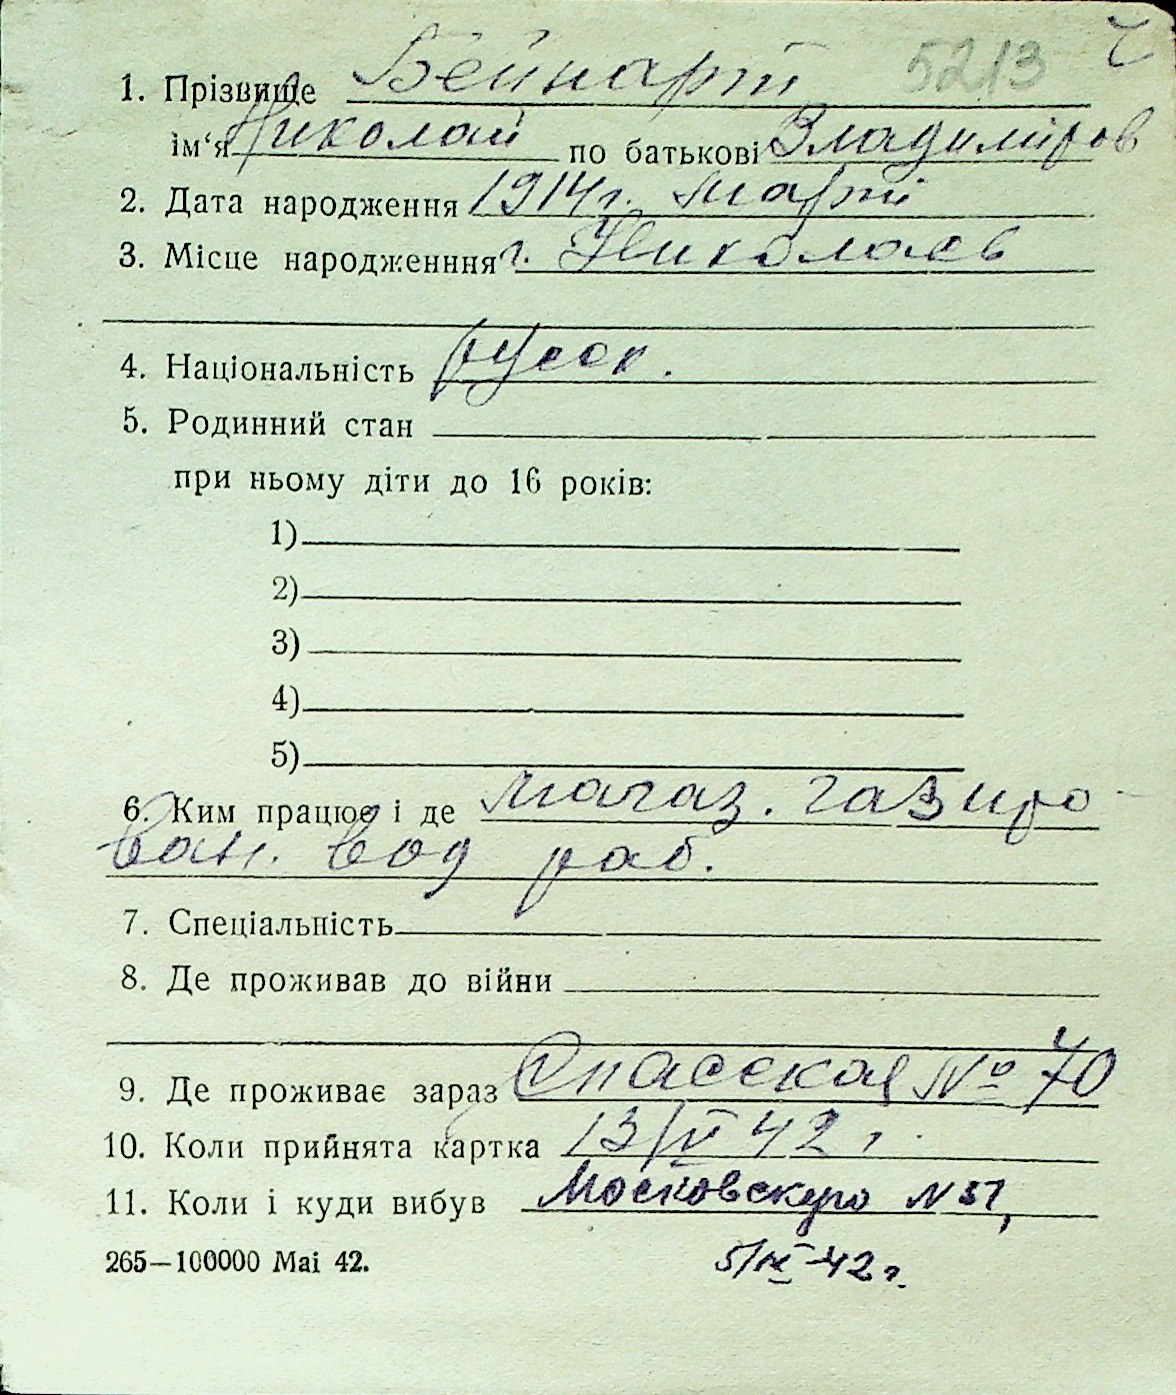 5213
1. Прізвище Бейнарт
ім‘я Николай по батькові Владимиров
2. Дата народження 1914 г. март
3. Місце народженння г. Николаев
4. Національність русск.
5. Родинний стан
при ньому діти до 16 років:
1)
2)
3)
4)
5)
6. Ким працює і де магаз. газиро-
ван. вод раб.
7. Спеціальність
8. Де проживав до війни
9. Де проживає зараз Спасская № 70
10. Коли прийнята картка 13/VI 42 г.
11. Коли і куди вибув Московскую N 51,
265—100000 Mai 42. 5/IX-42 г.